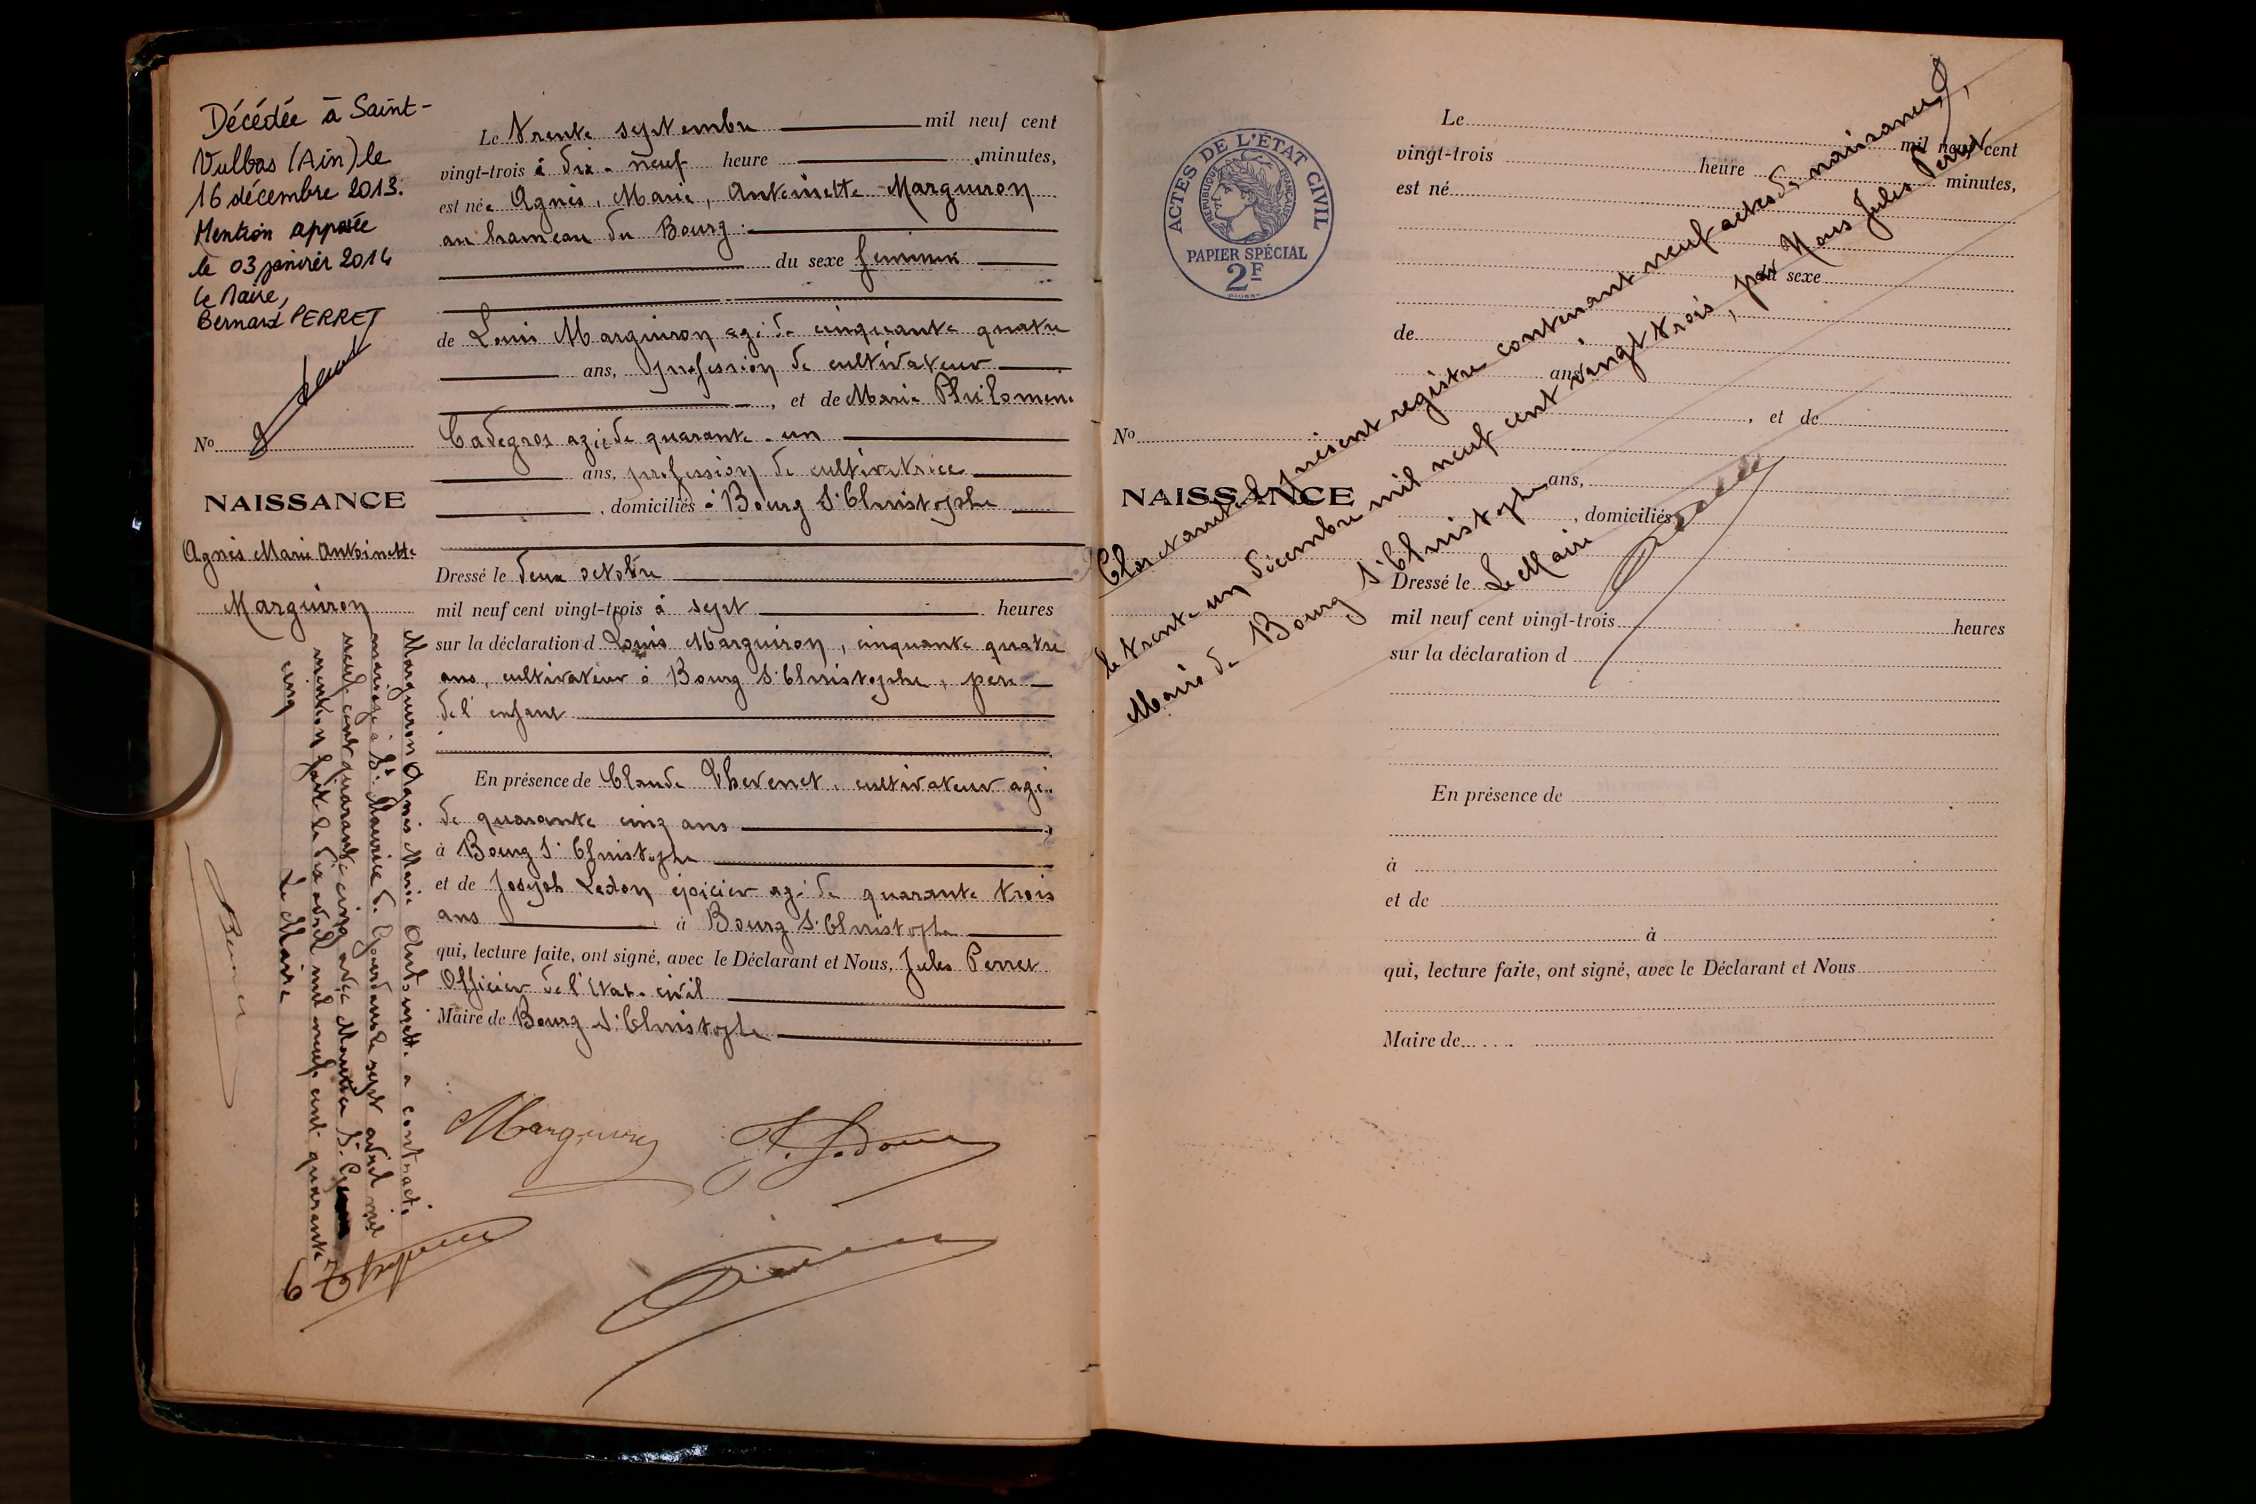 Décédée à Saint-
Vulbas (Ain) le
16 décembre 2013.
Mention apposée
le 03 janvier 2014
Le Maire,
Bernard PERRET
No 9
NAISSANCE
Agnès Marie Antoinette
Marguiron
Marguiron Agnès Marie Antoinette a contracté
mariage à St Maurice de Gourdans le sept avril mil
neuf cent quarante cinq avec Mantica St
mention faite le dix avril mil neuf cent quarante
cinq Le Maire
Le trente septembre mil neuf cent
vingt-trois à dix-neuf heure minutes,
est née Agnès, Marie, Antoinette Marguiron
au hameau du Bourg
du sexe féminin
de Louis Marguiron agé de cinquante quatre
ans, profession de cultivateur
, et de Marie Philomène
Cadegros agée de quarante-un
ans, profession de cultivatrice
, domiciliés à Bourg St Christophe
Dressé le deux octobre
mil neuf cent vingt-trois à sept heures
sur la déclaration d Louis Marguiron, cinquante quatre
ans, cultivateur à Bourg St Christophe, père
de l'enfant
En présence de Claude Thevenet, cultivateur agé
de quarante cinq ans
à Bourg St Christophe
et de Joseph Ledon épicier agé de quarante trois
ans à Bourg St Christophe
qui, lecture faite, ont signé, avec le Déclarant et Nous, Jules Perret
Officier de l'Etat-civil
Maire de Bourg St Christophe
Marguiron
ACTES DE L'ÉTAT CIVIL
RÉPUBLIQUE FRANÇAISE
PAPIER SPÉCIAL
2F
No
NAISSANCE
Le mil neuf cent
vingt-trois heure minutes,
est né
du sexe
de
ans
, et de
ans,
, domiciliés
Dressé le
mil neuf cent vingt-trois heures
sur la déclaration d
En présence de
à
et de
à
qui, lecture faite, ont signé, avec le Déclarant et Nous
Maire de
Clos et arrêté le présent registre contenant neuf actes de naissances,
le trente un décembre mil neuf cent vingt trois, par Nous Jules Perret
Maire de Bourg St Christophe
Le Maire